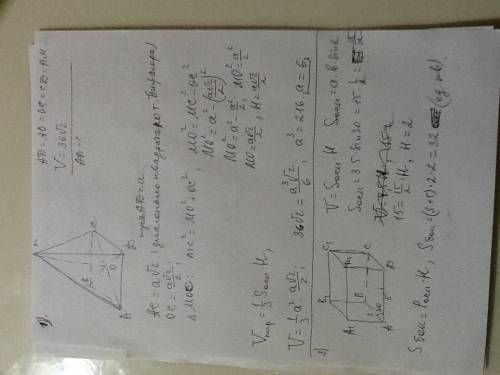 1).
AB = AD = DC = CB = AM
V = 36√2
AB - ?
M
B
C
A
O
D
пусть AB = a
AC = a√2 (диагональ квадрата по т. Пифагора)
OC = a√2/2
△ MOC: MC² = MO² + OC²
MO² = MC² - OC²
MO² = a² - (a√2/2)²
MO² = a² - a²/2, MO² = a²/2
MO = a√2/2, H = a√2/2
Vпир = 1/3 Sосн H,
V = 1/3 a² · a√2/2; 36√2 = a³√2/6; a³ = 216. a = 6,
3)
B₁
C₁
A₁
B
C
A
30
D
V = Sосн H Sосн = a b sin α
Sосн = 3·5 sin 30 = 15 · 1/2 = 15/2
15 = 15/2 H, H = 2.
Sбок = Pосн · H, Sбок = (3+5)·2·2 = 32 (ед. кв)